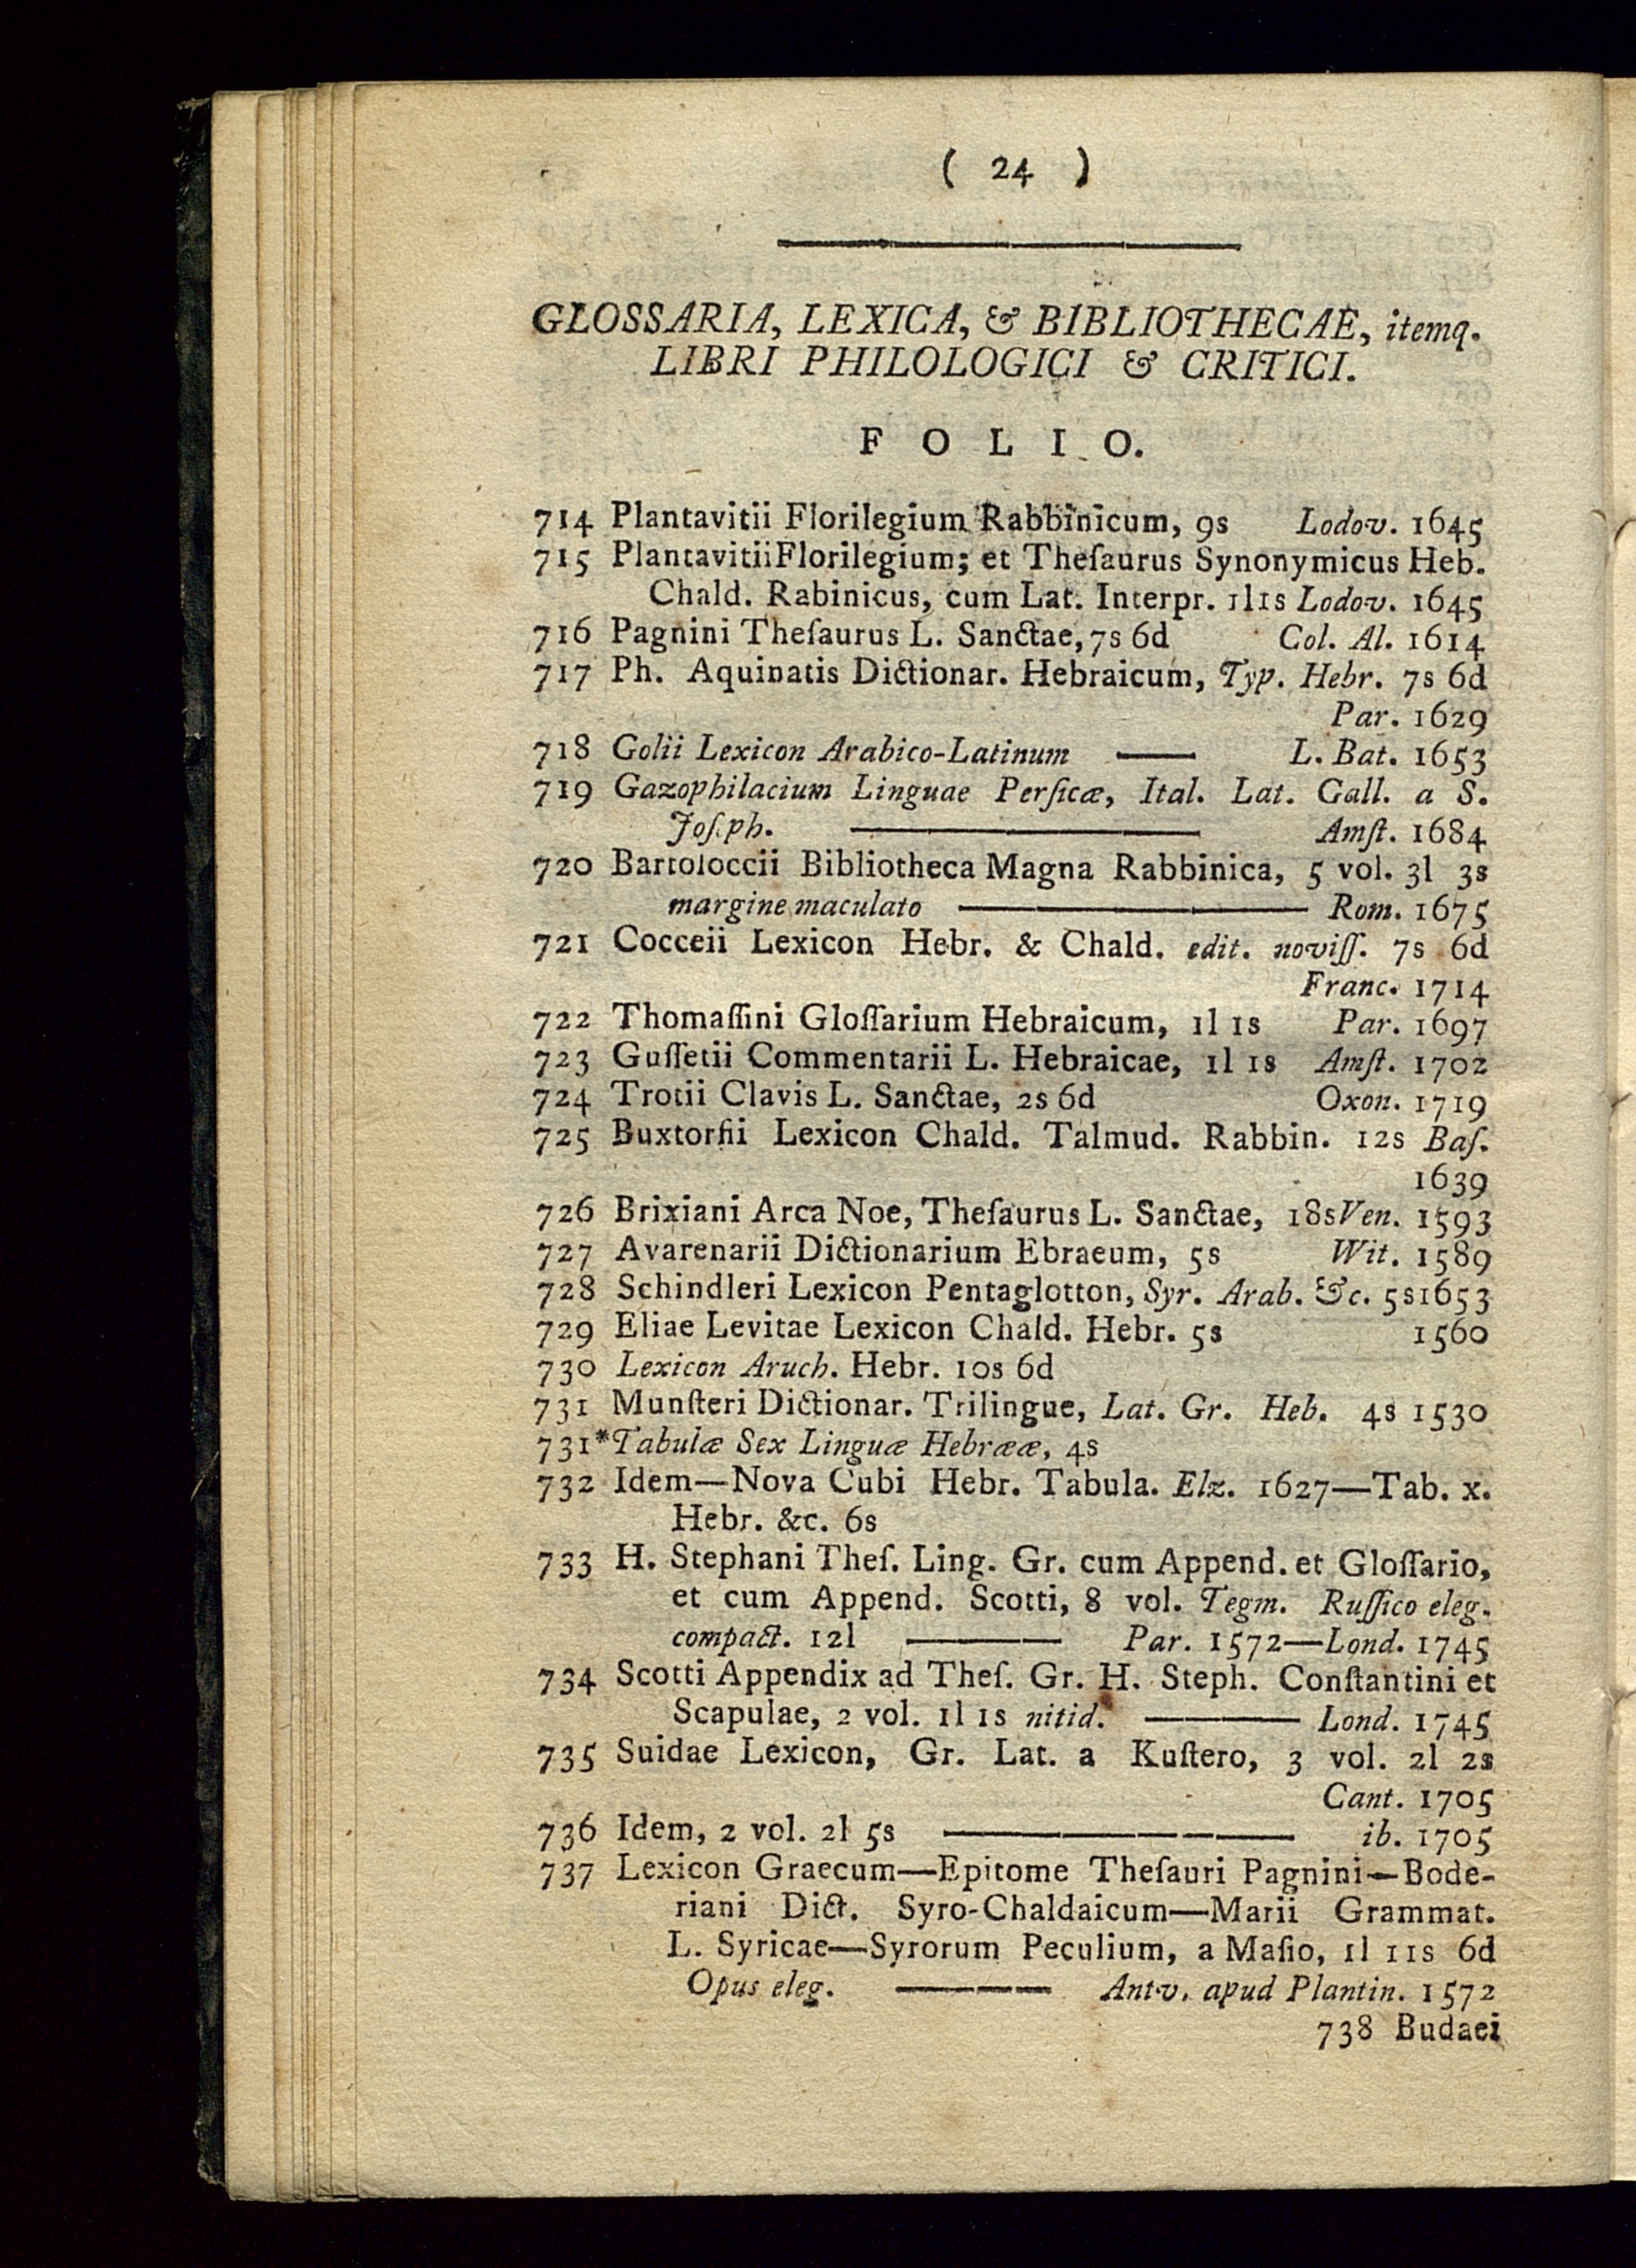 ( 24 )
GLOSSARIA, LEXICA, & BIBLIOTHECAE, itemq.
LIBRI PHILOLOGICI & CRITICI.
FOLIO.
714 Plantavitii Florilegium Rabbinicum, 9s Lodov. 1645
715 Plantavitii Florilegium; et Theſaurus Synonymicus Heb.
Chald. Rabinicus, cum Lat. Interpr. 1l 1s Lodov. 1645
716 Pagnini Theſaurus L. Sanctae, 7s 6d Col. Al. 1614
717 Ph. Aquinatis Dictionar. Hebraicum, Typ. Hebr. 7s 6d
Par. 1629
718 Golii Lexicon Arabico-Latinum —— L. Bat. 1653
719 Gazophilacium Linguae Perſicæ, Ital. Lat. Gall. a S.
Joſeph. —— Amſt. 1684
720 Bartoloccii Bibliotheca Magna Rabbinica, 5 vol. 3l 3s
margine maculato —— Rom. 1675
721 Cocceii Lexicon Hebr. & Chald. edit. noviſſ. 7s 6d
Franc. 1714
722 Thomaſſini Gloſſarium Hebraicum, 1l 1s Par. 1697
723 Guſſetii Commentarii L. Hebraicae, 1l 1s Amſt. 1702
724 Trotii Clavis L. Sanctae, 2s 6d Oxon. 1719
725 Buxtorfii Lexicon Chald. Talmud. Rabbin. 12s Baſ.
1639
726 Brixiani Arca Noe, Theſaurus L. Sanctae, 18s Ven. 1593
727 Avarenarii Dictionarium Ebraeum, 5s Wit. 1589
728 Schindleri Lexicon Pentaglotton, Syr. Arab. &c. 5s 1653
729 Eliae Levitae Lexicon Chald. Hebr. 5s 1560
730 Lexicon Aruch. Hebr. 10s 6d
731 Munſteri Dictionar. Trilingue, Lat. Gr. Heb. 4s 1530
731* Tabulæ Sex Linguæ Hebrææ, 4s
732 Idem—Nova Cubi Hebr. Tabula. Elz. 1627—Tab. x.
Hebr. &c. 6s
733 H. Stephani Theſ. Ling. Gr. cum Append. et Gloſſario,
et cum Append. Scotti, 8 vol. Tegm. Ruſſico eleg.
compact. 12l —— Par. 1572—Lond. 1745
734 Scotti Appendix ad Theſ. Gr. H. Steph. Conſtantini et
Scapulae, 2 vol. 1l 1s nitid. —— Lond. 1745
735 Suidae Lexicon, Gr. Lat. a Kuſtero, 3 vol. 2l 2s
Cant. 1705
736 Idem, 2 vol. 2l 5s —— ib. 1705
737 Lexicon Graecum—Epitome Theſauri Pagnini—Bode-
riani Dict. Syro-Chaldaicum—Marii Grammat.
L. Syricae—Syrorum Peculium, a Maſio, 1l 11s 6d
Opus eleg. —— Antv. apud Plantin. 1572
738 Budaei